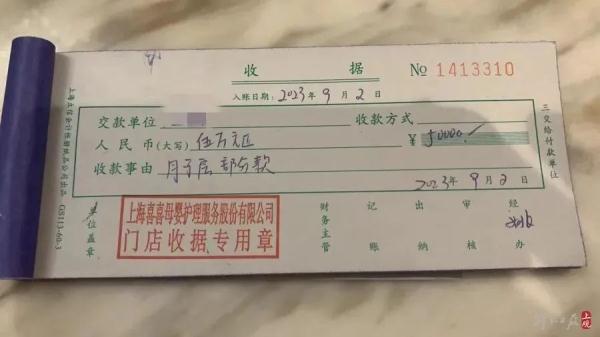 收 据 № 1413310
入账日期：2023年 9月 2日
交款单位 收款方式
人民币(大写) 伍万元正 ¥ 50000
收款事由 月子居 部分款
2023年 9月 2日
单位盖章
上海喜喜母婴护理服务股份有限公司
门店收据专用章
财务主管
记账
出纳
审核
经办
三交给付款单位
GS113-60-3
上观